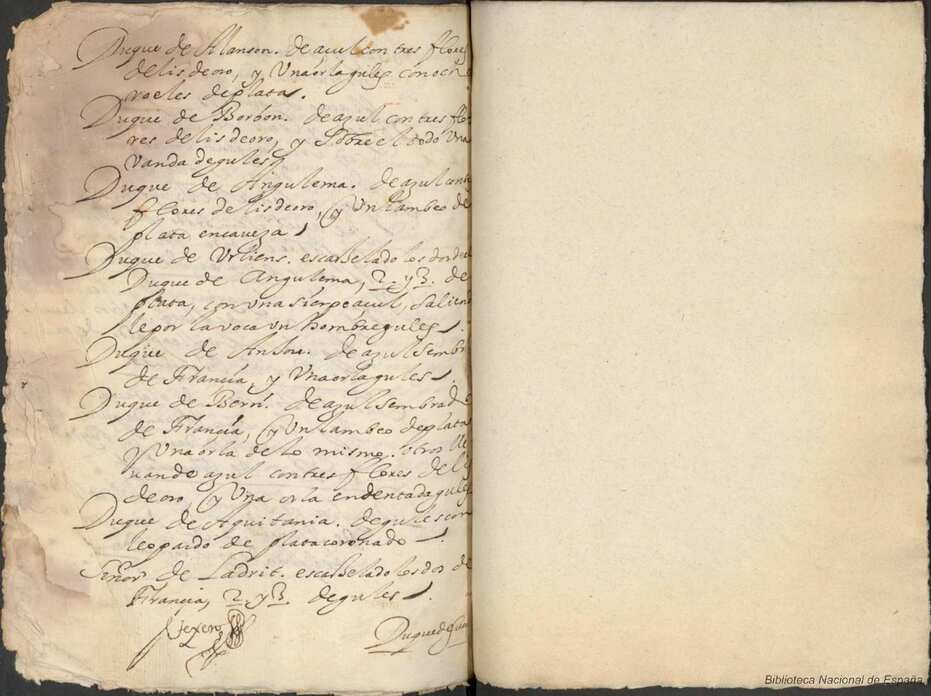 Duque de Alanson. de açul con tres flores
de lis de oro, y Una orla gules con och
roeles de plata.
Duque de Borbon. de azul con tres flo
res de lis de oro, y Sobre el todo Una
Vanda de gules
Duque de Angulema. de azul con
flores de lis de oro, y Un lambeo de
plata en caveza
Duque de Urliens. escartelado los dos del
Duque de Angulema, 2. y 3. de
plata, con una sierpe açul, Salien
le por la voca un hombre gules.
Duque de Anjou. de azul Sembr
de Francia, y Una orla gules.
Duque de Berri. de azul Sembrad
de Francia, y Un lambeo de plata
y Una orla de lo mismo. otros lle
uan de azul con tres flores de li
de oro y Una orla endentada gules
Duque de Aquitania. de gules con
leopardo de plata coronado
Señor de Labrit. escartelado los dos de
Francia, 2. y 3. de gules.
Duque de Gui
Biblioteca Nacional de España